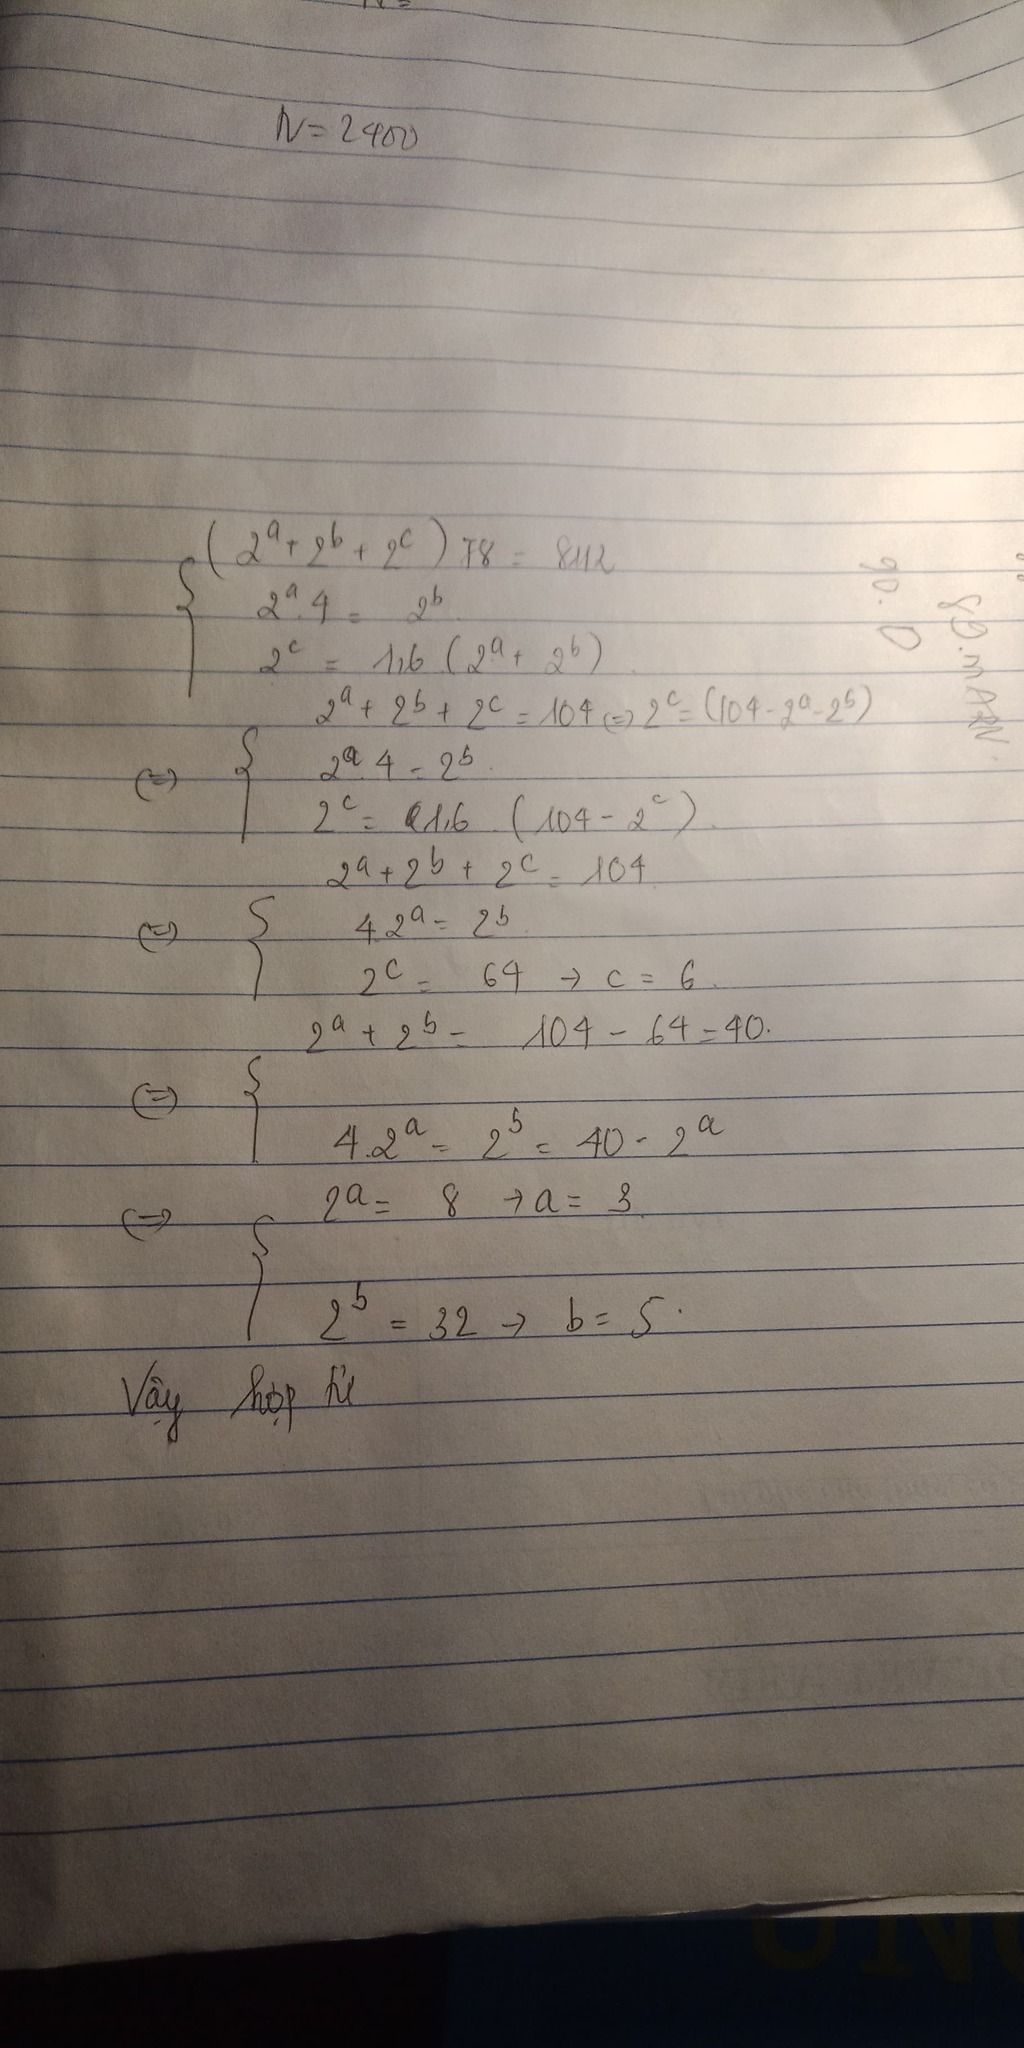 N = 2400
(2^a + 2^b + 2^c) 78 = 8112
2^a . 4 = 2^b
2^c = 1,6 (2^a + 2^b)
2^a + 2^b + 2^c = 104 (=) 2^c = (104 - 2^a - 2^b)
(=) 2^a . 4 = 2^b
2^c = 1,6 (104 - 2^c)
2^a + 2^b + 2^c = 104
(=) 4.2^a = 2^b
2^c = 64 → c = 6
2^a + 2^b = 104 - 64 = 40.
(=)
4.2^a = 2^b = 40 - 2^a
(=) 2^a = 8 → a = 3
2^b = 32 → b = 5.
Vậy hợp tử